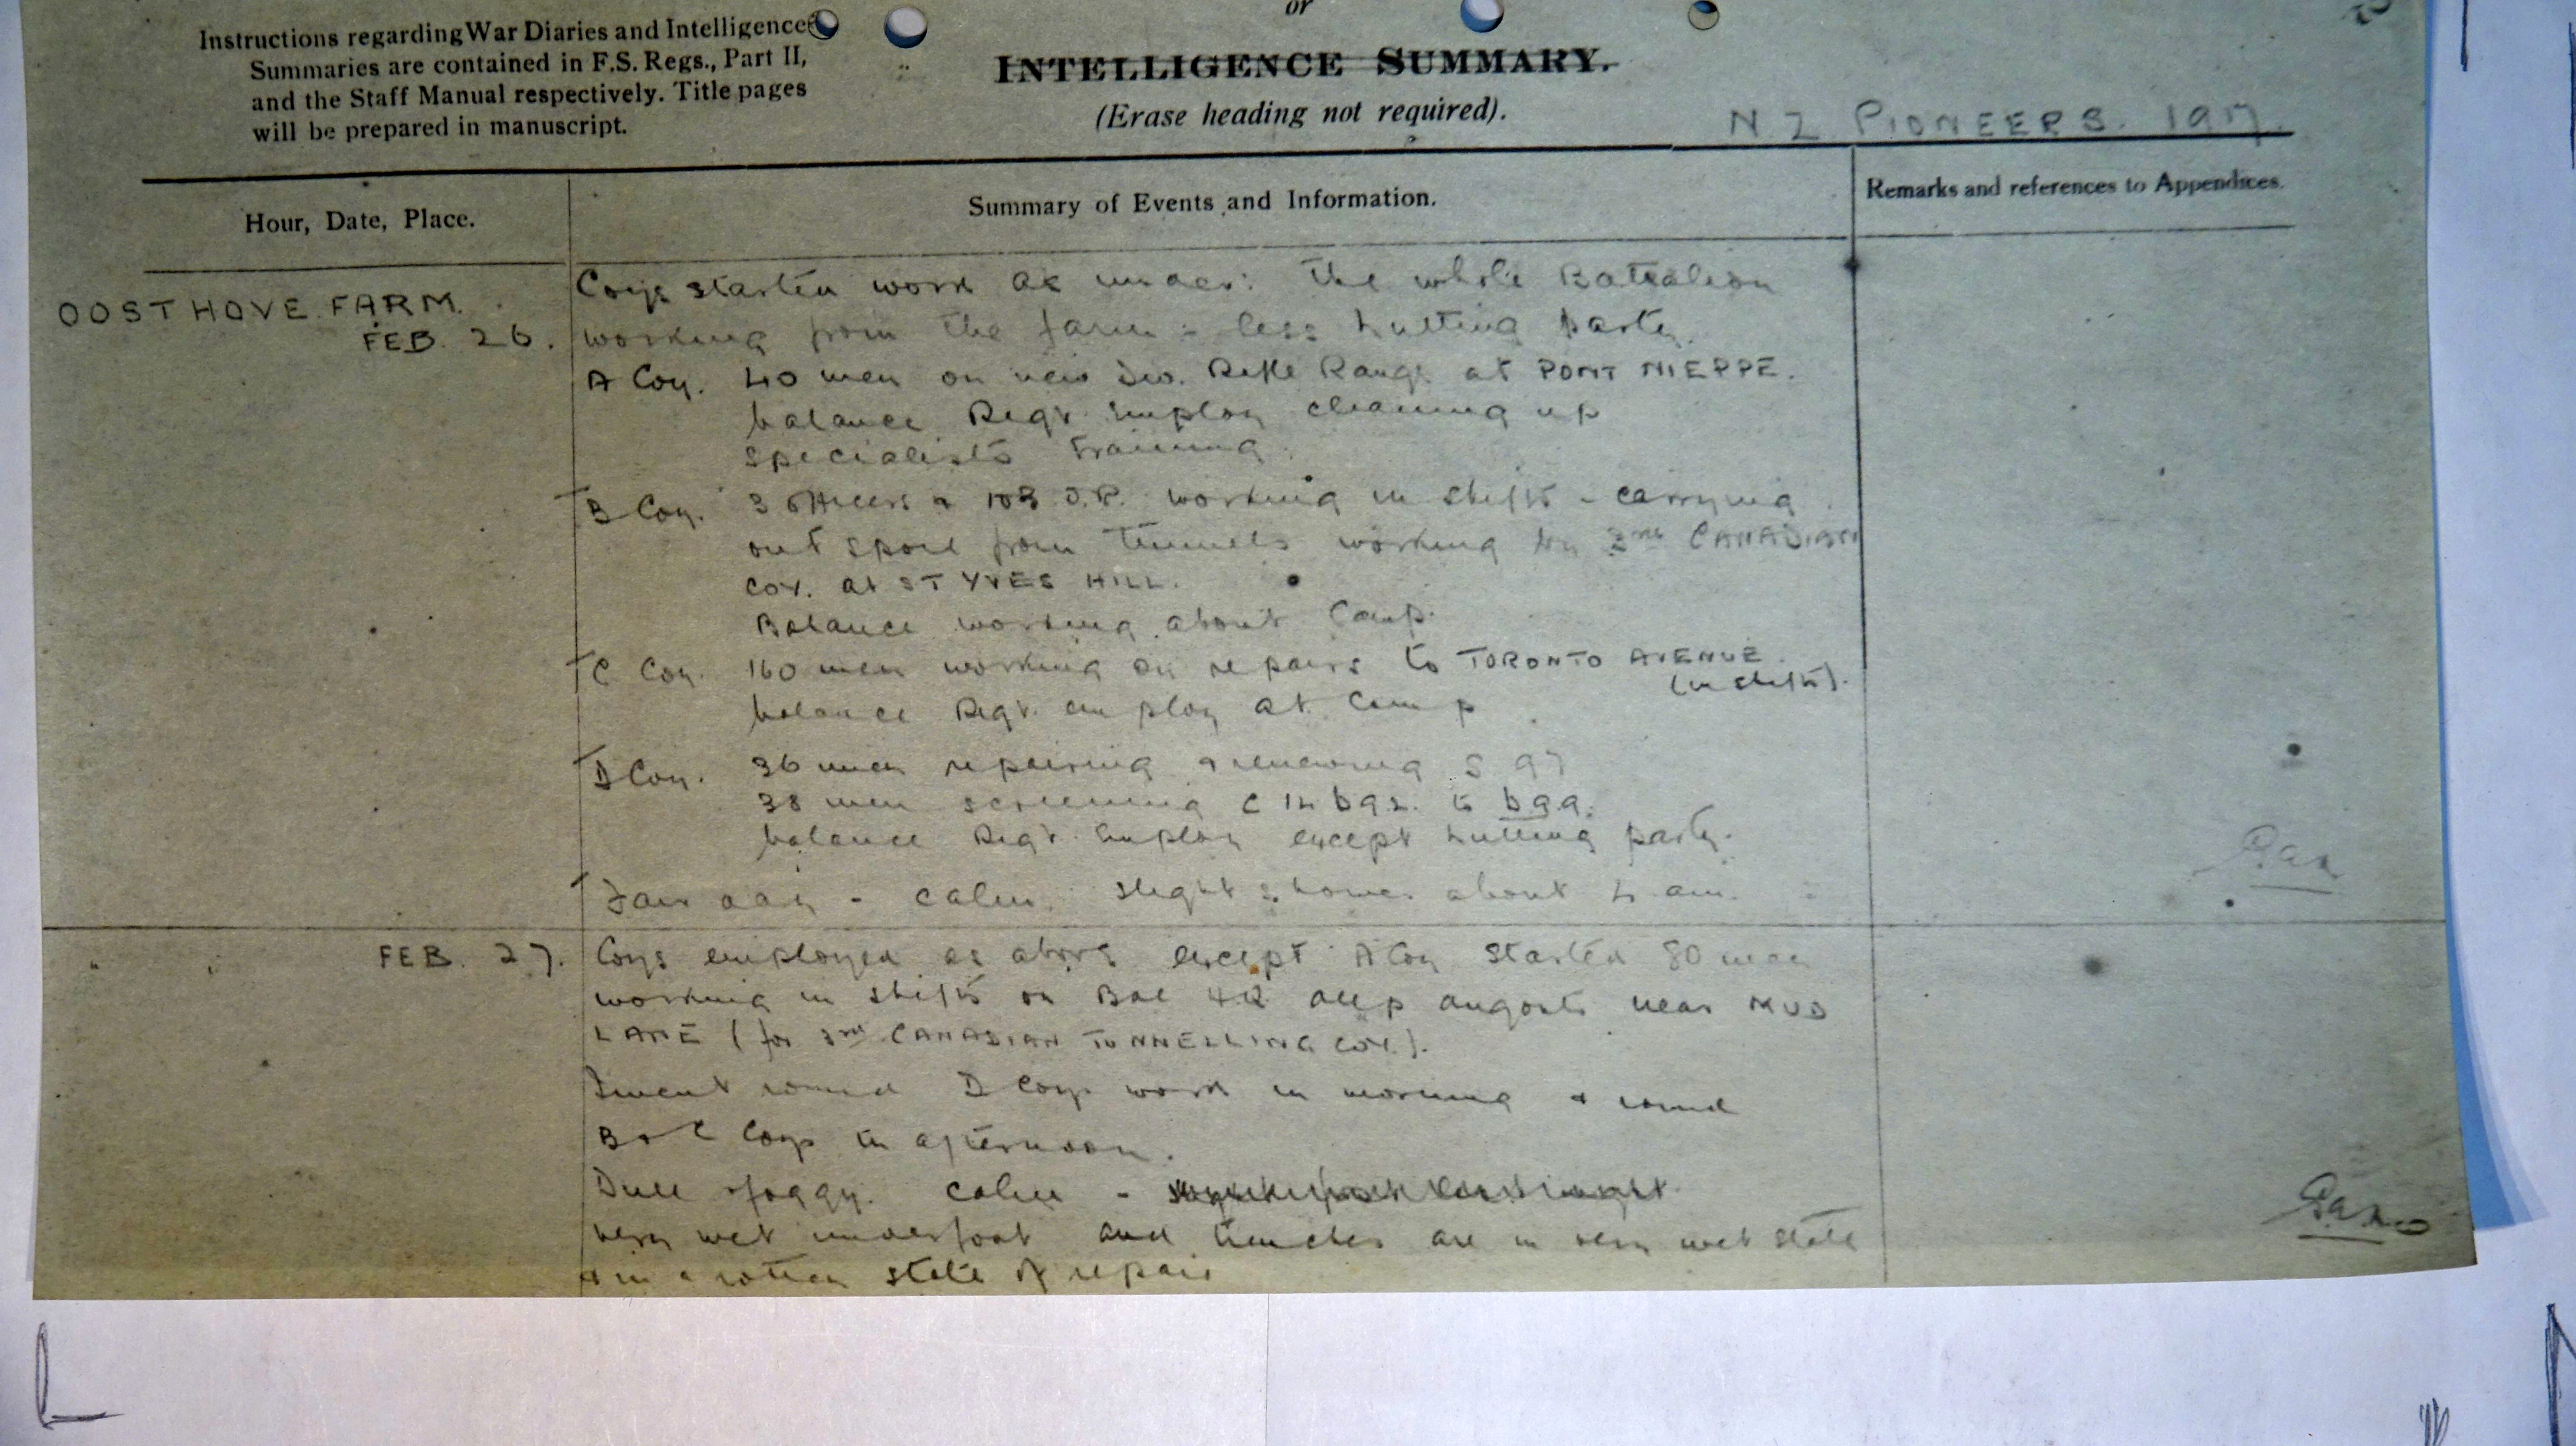 Instructions regarding War Diaries and Intelligence
Summaries are contained in F.S. Regs., Part II,
and the Staff Manual respectively. Title pages
will be prepared in manuscript.
or
INTELLIGENCE SUMMARY.
(Erase heading not required).
N Z PIONEERS. 1917.
Hour, Date, Place.
Summary of Events and Information.
Remarks and references to Appendices.
OOSTHOVE FARM.
FEB. 26.
Coys started work as under: The whole Battalion
working from the farm - less hutting party.
A Coy. 40 men on new Div. Rifle Range at PONT NIEPPE.
balance Regt. Employ cleaning up
specialists training.
B Coy. 3 officers & 108 O.R. working in shifts - carrying
out spoil from tunnels working by 3rd CANADIAN
COY. at ST YVES HILL.
Balance working about Camp.
C Coy. 160 men working on repairs to TORONTO AVENUE.
(in shifts).
balance Regt. employ at Camp.
D Coy. 36 men repairing & renewing S 97
38 men screening C 14 b 9.2. to b 9.9.
balance Regt. Employ except hutting party.
Fair day - calm. slight shower about 4 am.
" " FEB. 27.
Coys employed as above except A Coy started 80 men
working in shifts on Bde deep dugouts near MUD
LANE (for 3rd CANADIAN TUNNELLING COY.).
I went round D Coys work in morning & round
B & C Coys in afternoon.
Dull & foggy. calm -
very wet underfoot and trenches are in very wet state
& in a rotten state of repair